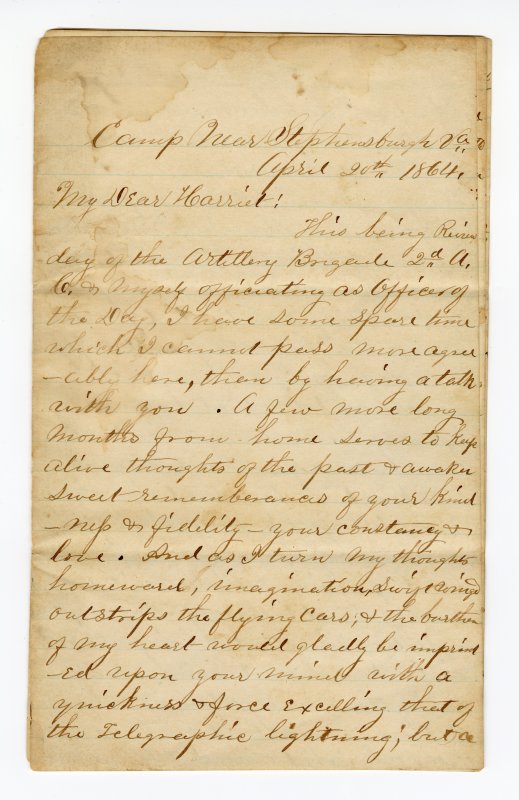 Camp Near Stephensburgh Va.
April 20th 1864.
My Dear Harriet!
This being Review
day of the Artillery Brigade 2d A.
C. & Myself officiating as Officer of
the Day, I have some spare time
which I cannot pass more agree
-ably here, than by having a talk
with you. A few more long
Months from home serves to keep
alive thoughts of the past & awaken
sweet rememberances of your kind
-ness & fidelity - your constancy &
love. And as I turn my thoughts
homeward, imagination, swift winged
outstrips the flying Cars; & the burthen
of my heart would gladly be imprint
-ed upon your mind with a
quickness & force Excelling that of
the Telegraphic lightning; but a